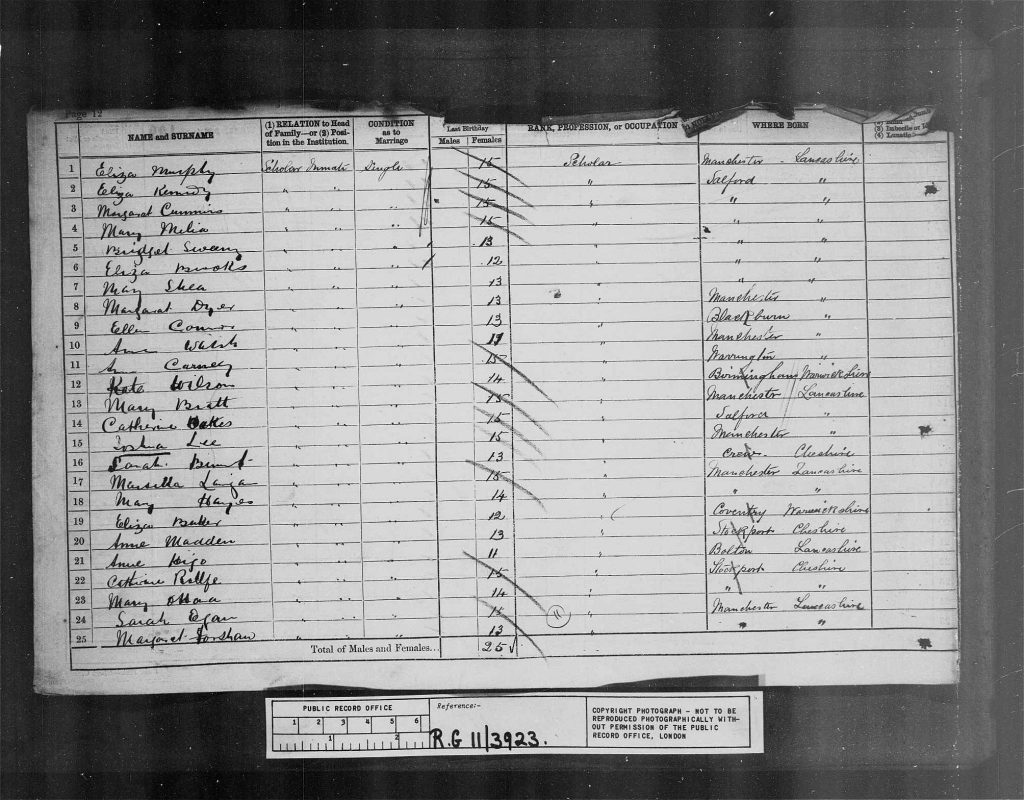 Page 12
NAME and SURNAME (1) RELATION to Head of Family—or (2) Position in the Institution. CONDITION as to Marriage Last Birthday Males Females RANK, PROFESSION, or OCCUPATION WHERE BORN (3) Imbecile or (4) Lunatic
1 Eliza Murphy Scholar Inmate Single 15 Scholar Manchester Lancashire
2 Eliza Kennedy " " " 15 " Salford "
3 Margaret Cummins " " " 15 " " "
4 Mary Melia " " " 15 " " "
5 Bridget Sweeny " " " 13 " " "
6 Eliza Brooks " " " 12 " " "
7 Mary Shea " " " 13 " " "
8 Margaret Dyer " " " 13 " Manchester "
9 Ellen Connor " " " 13 " Blackburn "
10 Ann Walsh " " " Manchester "
11 Ann Carney " " " 15 " Warrington "
12 Kate Wilson " " " 14 " Birmingham Warwickshire
13 Mary Bratt " " " 15 " Manchester Lancashire
14 Catherine Oakes " " " 15 " Salford "
15 Lee " " " 15 " Manchester "
16 Sarah " " " 13 " Crew Cheshire
17 " " " 15 " Manchester Lancashire
18 Mary Hayes " " " 14 " " "
19 Eliza Baker " " " 12 " Coventry Warwickshire
20 Anne Madden " " " 13 " Stockport Cheshire
21 Anne " " " 11 " Bolton Lancashire
22 Catherine " " " 15 " Stockport Cheshire
23 Mary " " " 14 " " "
24 Sarah Egan " " " 15 " Manchester Lancashire
25 Margaret Forshaw " " " 13 " " "
11
Total of Males and Females... 25
PUBLIC RECORD OFFICE
1 2 3 4 5 6
1 2
Reference:-
R.G 11/3923.
COPYRIGHT PHOTOGRAPH - NOT TO BE
REPRODUCED PHOTOGRAPHICALLY WITH-
OUT PERMISSION OF THE PUBLIC
RECORD OFFICE, LONDON